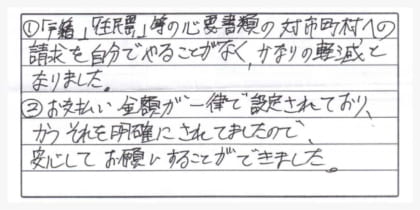 ①「戸籍」「住民票」等の必要書類の対市町村への
請求を自分でやることがなく、かなりの軽減と
なりました。
②お支払い金額が一律で設定されており、
かつそれを明確にされてましたので、
安心してお願いすることができました。